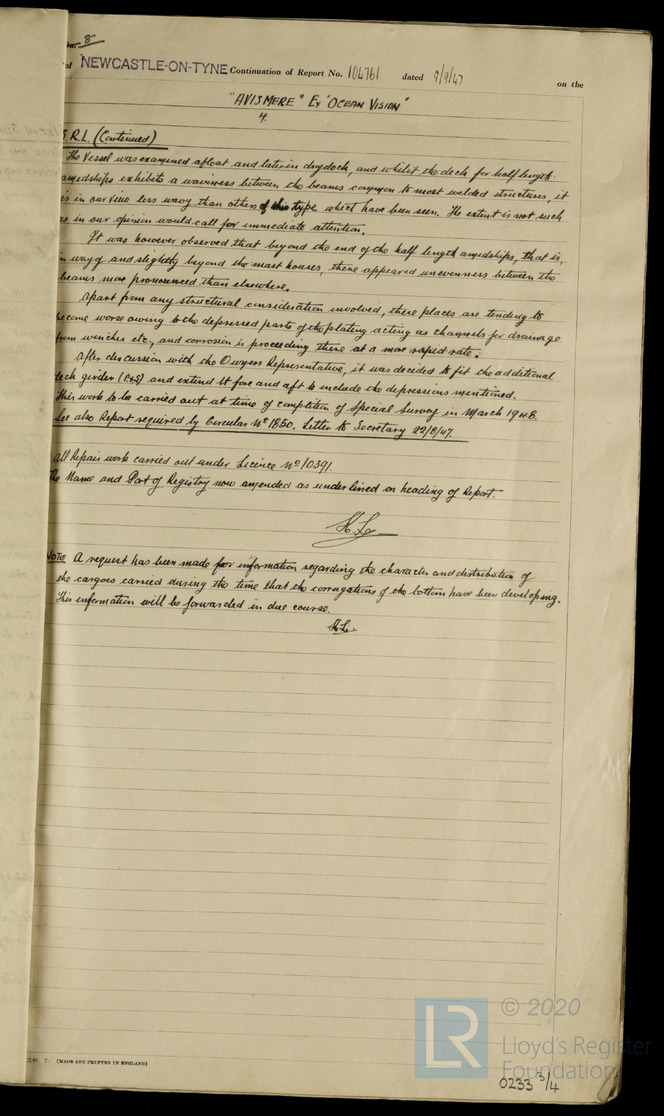 8
NEWCASTLE-ON-TYNE Continuation of Report No. 104761 dated 9/9/47 on the
"AVISMERE" Ex "OCEAN VISION"
4.
S.R.L. (Continued)
The Vessel was examined afloat and later in drydock, and whilst the deck for half length
amidships exhibits a waviness between the beams common to most welded structures, it
is in our view less wavy than others of this type which have been seen. The extent is not such
as in our opinion would call for immediate attention.
It was however observed that beyond the end of the half length amidships, that is,
in way of and slightly beyond the mast houses, there appeared unevenness between the
beams more pronounced than elsewhere.
Apart from any structural consideration involved, these places are tending to
become worse owing to the depressed parts of the plating acting as channels for drainage
from winches etc., and corrosion is proceeding there at a more rapid rate.
After discussion with the Owners Representative, it was decided to fit the additional
deck girder (P&S) and extend it fore and aft to include the depressions mentioned.
This work to be carried out at time of completion of Special Survey in March 1948.
See also Report required by Circular No 1850. Letter to Secretary 22/8/47.
All Repair work carried out under Licence No 10391.
The Name and Port of Registry now amended as underlined on heading of Report.
NOTE A request has been made for information regarding the character and distribution of
the cargoes carried during the time that the corrugations of the bottom have been developing.
This information will be forwarded in due course.
(MADE AND PRINTED IN ENGLAND)
LR © 2020
Lloyd's Register
Foundation
0233 3/4